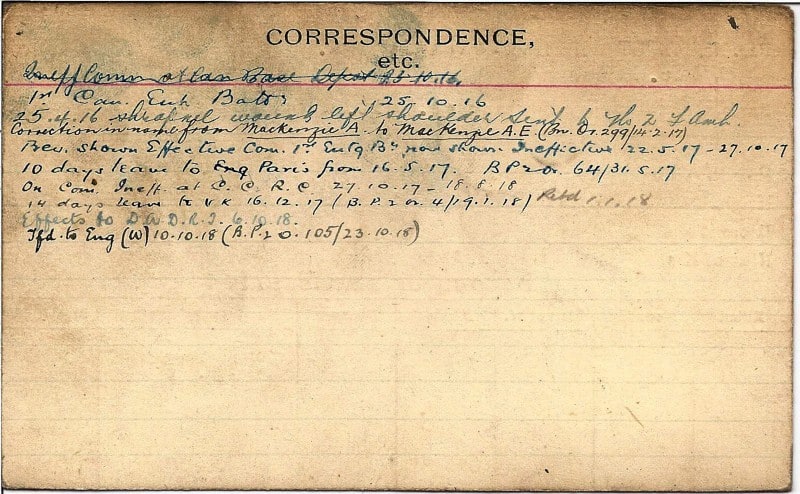 CORRESPONDENCE,
etc.
Ineff Comm at Can Base Depot 23.10.16.
1st Can. Ent. Battn 25.10.16
25.4.16 shrapnel wound left shoulder sent to No 2 F Amb.
Correction in name from MacKenzie A. to MacKenzie A.E (Bn. Or 299/14-2-17)
Prev. shown Effective Com. 1st Entg Bn now shown Ineffective 22.5.17 - 27.10.17
10 days leave to Eng Paris from 16.5.17. B P 2 Or 64/31.5.17
On Com. Ineff. at C.C.R.C. 27.10.17 - 18.8.18
14 days leave to U K 16.12.17 (B.P.2 Or. 4/19.1.18) Retd 1.1.18
Effects to 6.10.18.
Tfd. to Eng (W) 10.10.18 (B.P.2 O. 105/23.10.18)